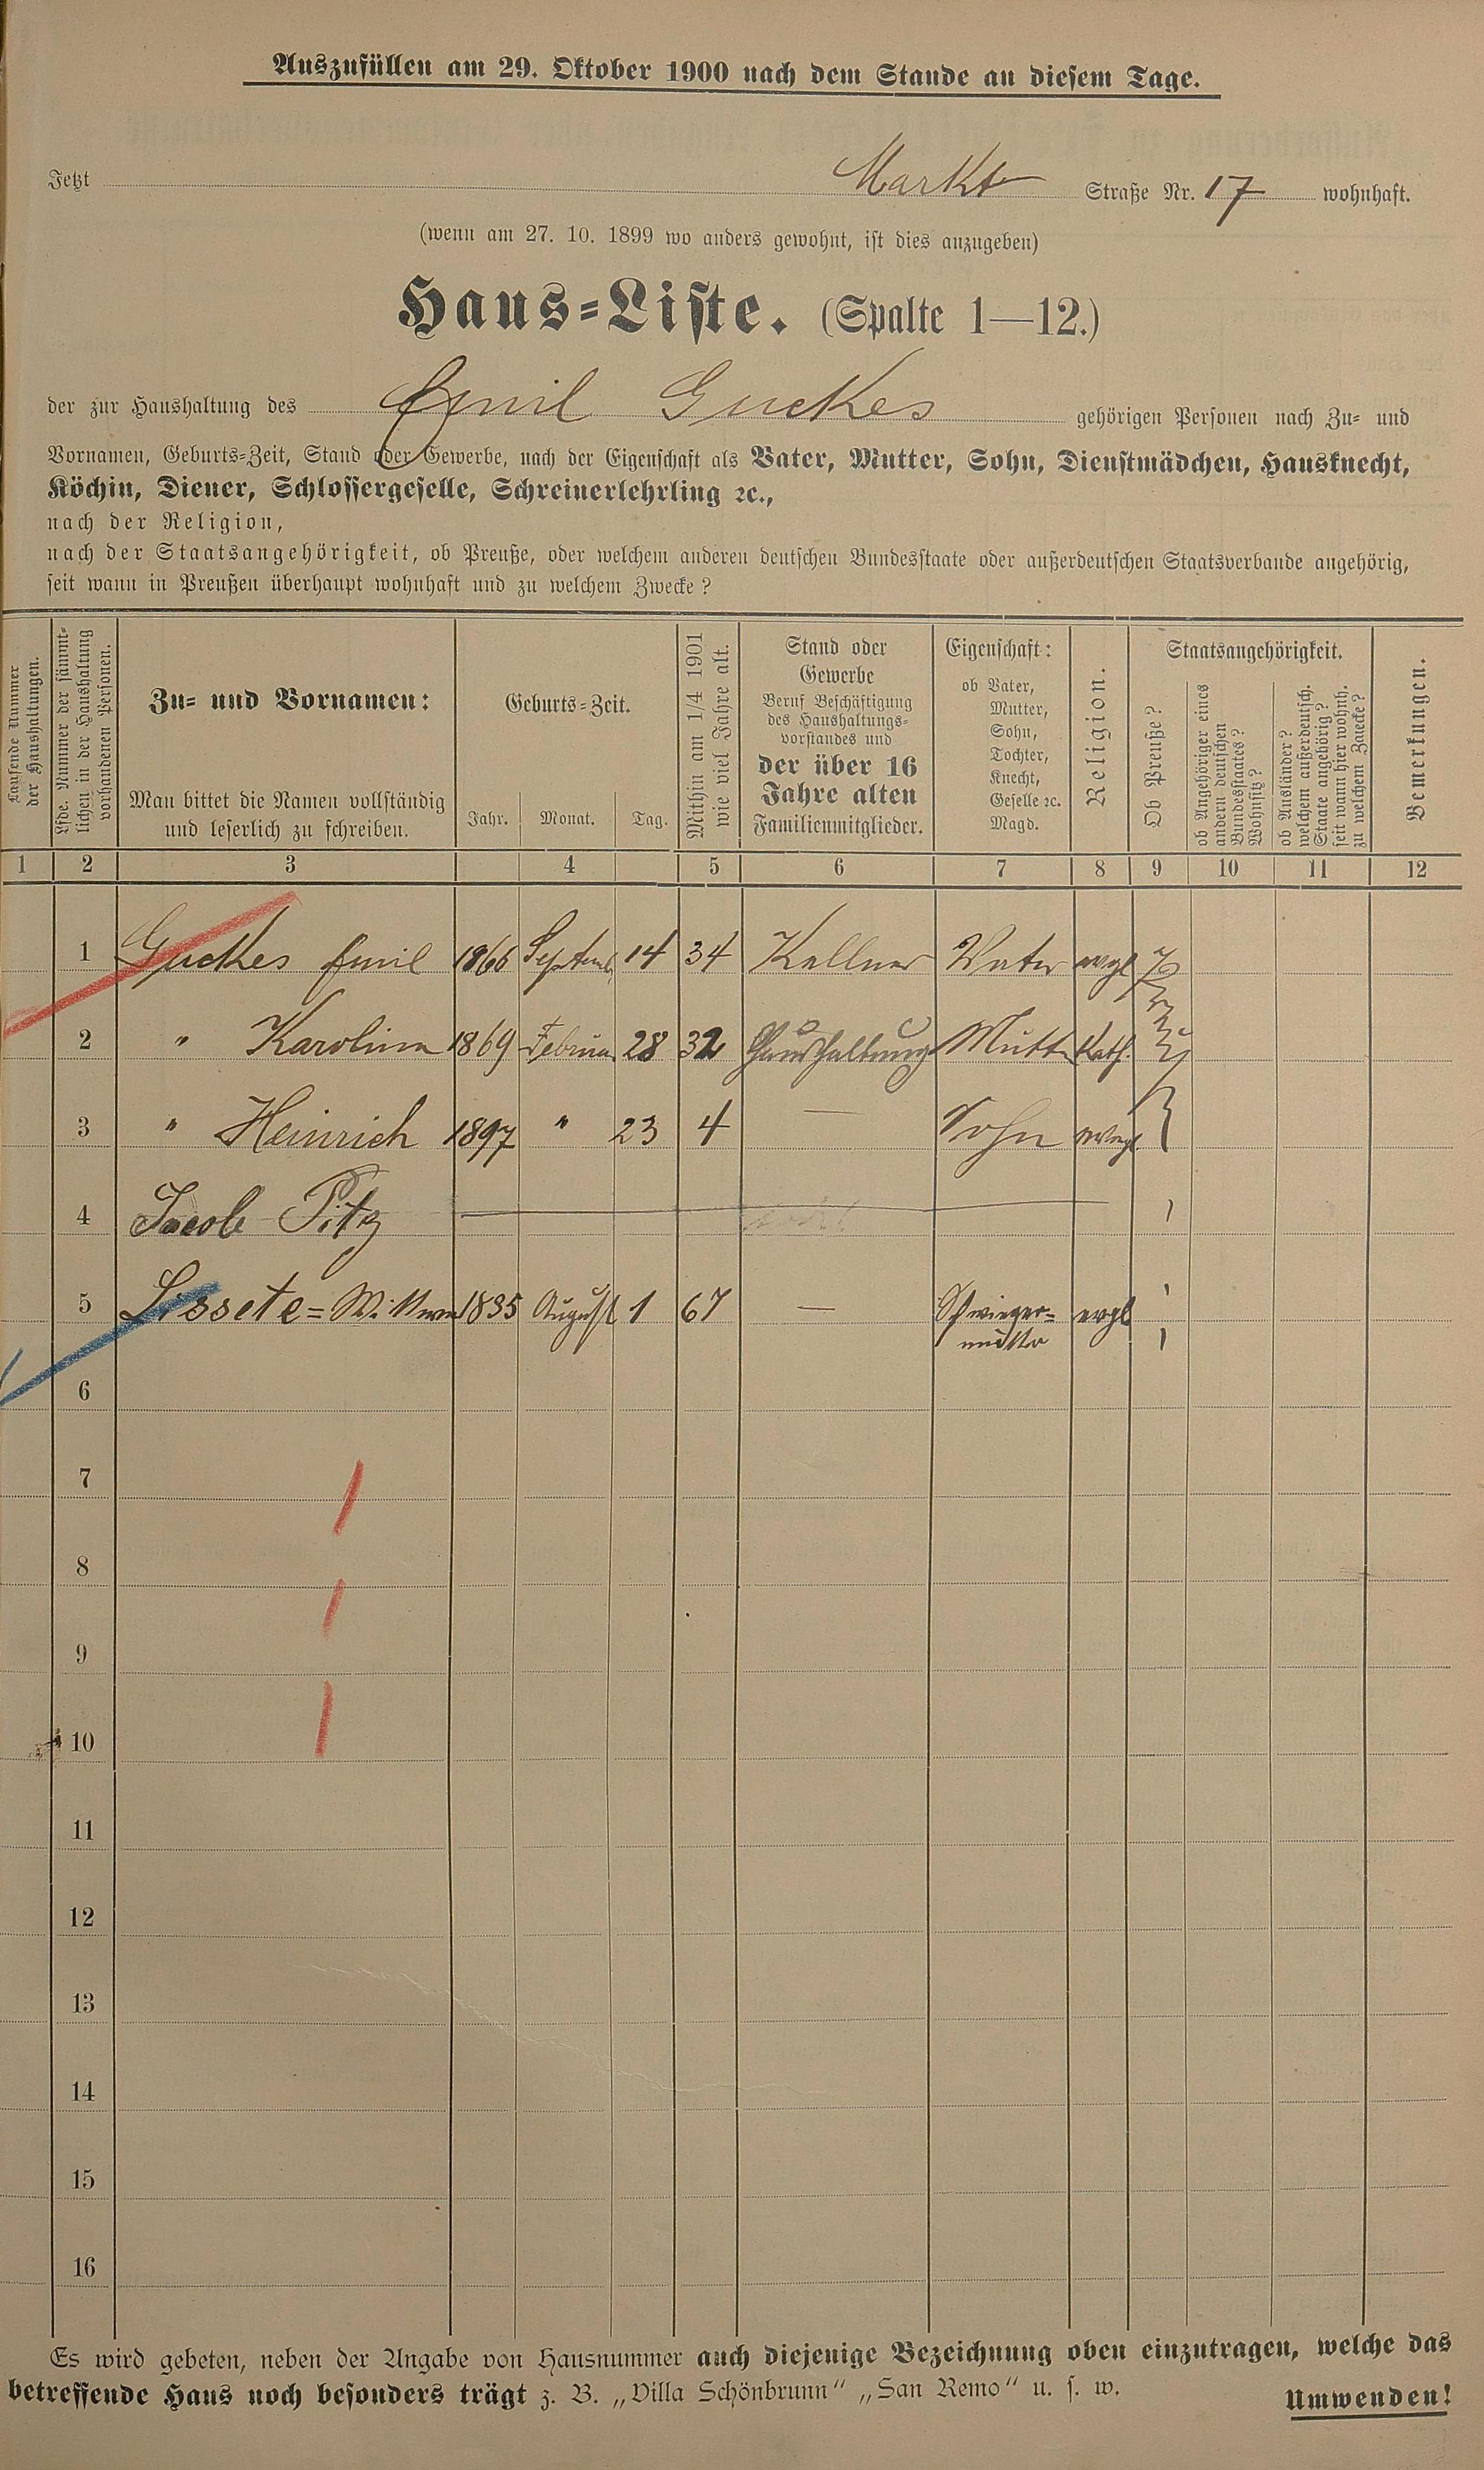 Auszufüllen am 29. Oktober 1900 nach dem Stande an diesem Tage.
Jetzt Markt Straße Nr. 17 wohnhaft.
(wenn am 27. 10. 1899 wo anders gewohnt, ist dies anzugeben)
Haus=Liste. (Spalte 1—12.)
der zur Haushaltung des Emil Guckes gehörigen Personen nach Zu= und
Vornamen, Geburts=Zeit, Stand oder Gewerbe, nach der Eigenschaft als Vater, Mutter, Sohn, Dienstmädchen, Hausknecht,
Köchin, Diener, Schlossergeselle, Schreinerlehrling ꝛc.,
nach der Religion,
nach der Staatsangehörigkeit, ob Preuße, oder welchem anderen deutschen Bundesstaate oder außerdeutschen Staatsverbande angehörig,
seit wann in Preußen überhaupt wohnhaft und zu welchem Zwecke?
Laufende Nummer
der Haushaltungen.
Lfde. Nummer der sämmt=
lichen in der Haushaltung
vorhandenen Personen.
Zu= und Vornamen:
Man bittet die Namen vollständig
und leserlich zu schreiben.
Geburts=Zeit.
Jahr. Monat. Tag.
Mithin am 1/4 1901
wie viel Jahre alt.
Stand oder
Gewerbe
Beruf Beschäftigung
des Haushaltungs=
vorstandes und
der über 16
Jahre alten
Familienmitglieder.
Eigenschaft:
ob Vater,
Mutter,
Sohn,
Tochter,
Knecht,
Geselle ꝛc.
Magd.
Religion.
Staatsangehörigkeit.
Ob Preuße?
ob Angehöriger eines
andern deutschen
Bundesstaates?
Wohnsitz?
ob Ausländer?
welchem außerdeutsch.
Staate angehörig?
seit wann hier wohnh.
zu welchem Zwecke?
Bemerkungen.
1 2 3 4 5 6 7 8 9 10 11 12
1 Guckes Emil 1866 Septemb. 14 34 Kellner Vater evgl
2 " Karolina 1869 Februar 28 32 Haushaltung Mutter Kath.
3 " Heinrich 1897 " 23 4 — Sohn evgl
4 Jacob Pitz
5 Lissete= Wittwe 1835 August 1 67 — Schwieger= evgl
mutter
6
7
8
9
10
11
12
13
14
15
16
Es wird gebeten, neben der Angabe von Hausnummer auch diejenige Bezeichnung oben einzutragen, welche das
betreffende Haus noch besonders trägt z. B. „Villa Schönbrunn" „San Remo" u. s. w.
Umwenden!